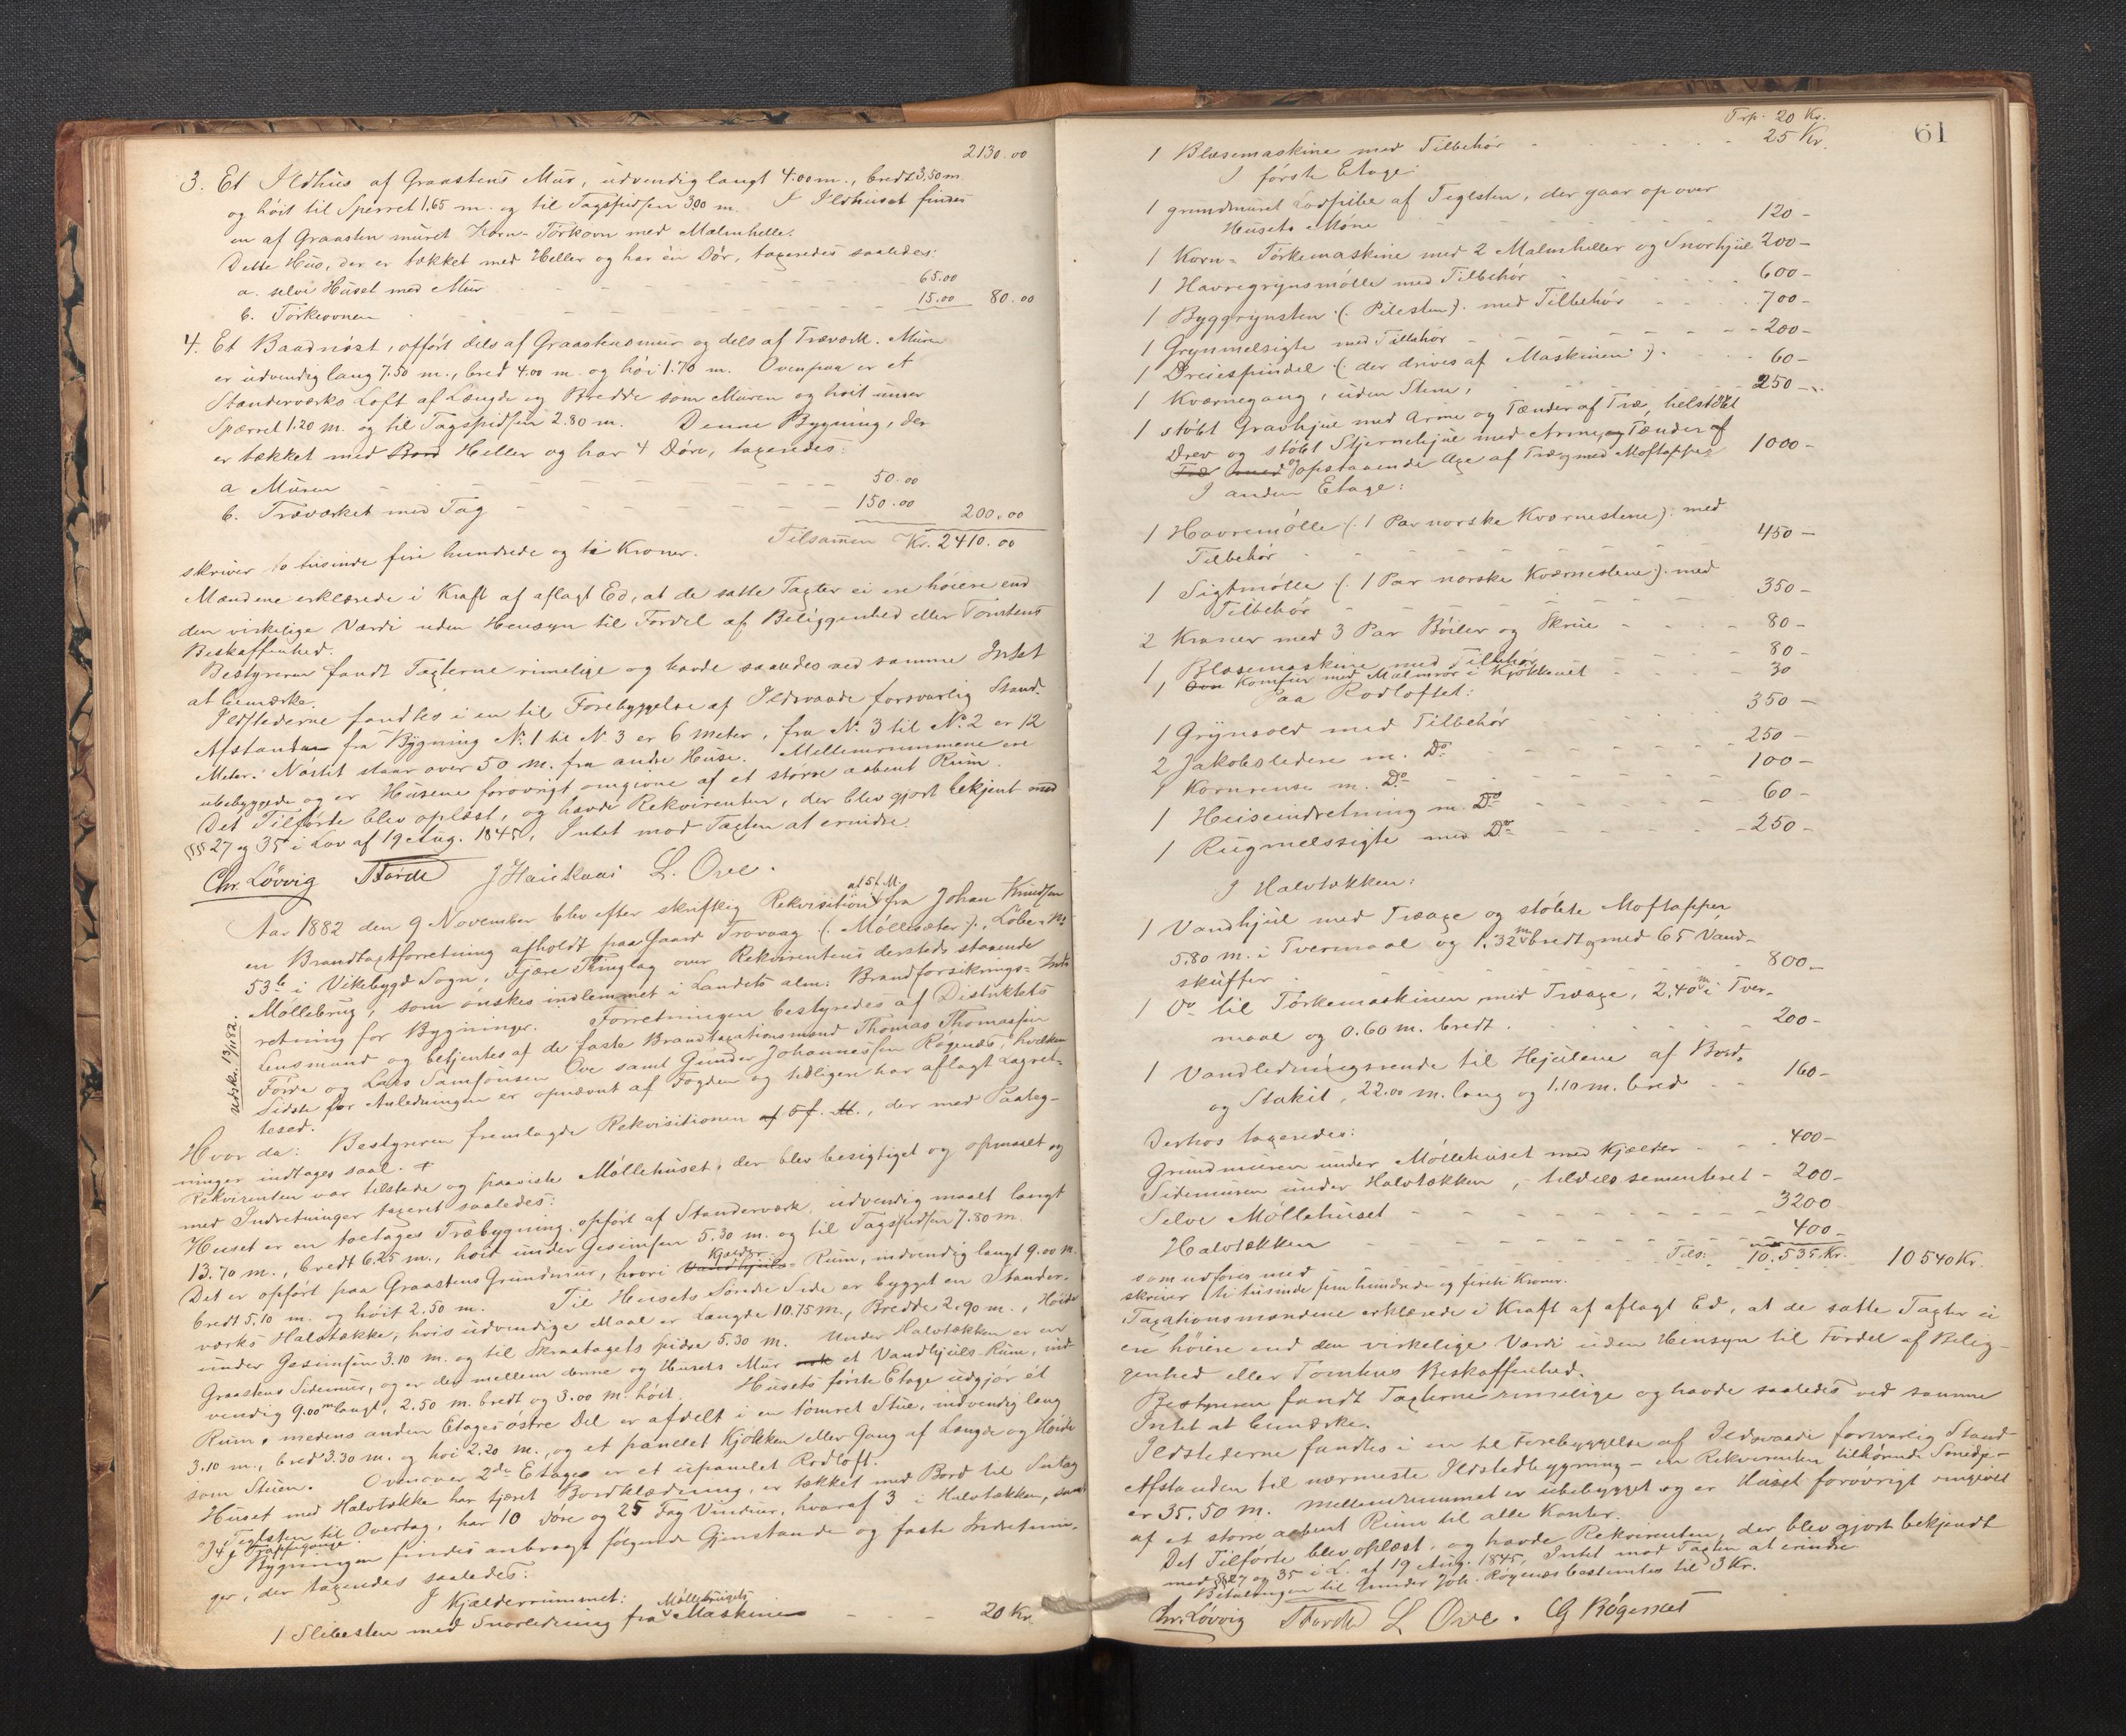 2130.00
3. Et Ildhus af Graastens Mur, udvendig langt 4.00 m., bredt 3.50 m.
og höit til Sperret 1.65 m. og til Tagspidsen 3.00 m. I Ildhuset findes
en af Graasten muret Korn-Törkovn med Malmhelle.
Dette Hus, der er tækket med Heller og har én Dör, taxeredes saaledes:
a. selve Huset med Mur 65.00
b. Törkeovnen 15.00 80.00
4. Et Baadnöst, opfört dels af Graastensmur og dels af Træværk. Muren
er udvendig lang 7.50 m., bred 4.00 m. og höi 1.70 m. Ovenpaa er et
Standerværks Loft af Længde og Bredde som Muren og höit under
Spærret 1.20 m. og til Tagspidsen 2.80 m. Denne Bygning, der
er tækket med Bord Heller og har 4 Döre, taxeredes:
a. Muren 50.00
b. Træværket med Tag 150.00 200.00
Tilsamen Kr. 2410.00
skriver to tusinde fire hundrede og ti Kroner.
Mændene erklærede i Kraft af aflagt Ed, at de satte Taxter ei ere höiere end
den virkelige Værdi uden Hensyn til Fordel af Beliggenhed eller Tomtens
Beskaffenhed.
Bestyreren fandt Taxterne rimelige og havde saaledes ved samme Intet
at bemærke.
Ildstederne fandtes i en til Forebyggelse af Ildsvaade forsvarlig Stand.
Afstanden fra Bygning No. 1 til No. 3 er 6 Meter, fra No. 3 til No. 2 er 12
Meter. Nöstet staar over 50 m. fra andre Huse. Mellemrummene ere
ubebyggede og er Husene forövrigt omgivne af et större aabent Rum.
Det Tilförte blev oplæst, og havde Rekvirenten, der blev gjort bekjent med
§§§ 27 og 35 i Lov af 19 Aug. 1845, Intet mod Taxten at erindre.
Chr. Lövvig TFörde J Hauskaas L. Ove.
Aar 1882 den 9 November blev efter skriftlig Rekvisition af 5 f. M. fra Johan Knudsen
en Brandtaxtforretning afholdt paa Gaard Trovaag (: Möllesæter :), Löbe-No
53 b i Vikebygd Sogn, Fjære Thinglag over Rekvirentens dersteds staaende
Möllebrug, som önskes indlemmet i Landets alm: Brandforsikrings-Ind-
retning for Bygninger. Forretningen bestyredes af Distriktets
Lensmand og betjentes af de faste Brandtaxationsmænd Thomas Thomassen
Förde og Lars Samsonsen Ove samt Gunder Johannessen Rögenæs, hvilken
Sidste for Anledningen er opnævnt af Fogden og tidligere har aflagt Lagret-
tesed.
Udskr. 13/11 82.
Hvor da: Bestyreren fremlagde Rekvisitionen af 5 f. M., der med Paateg-
ninger indtages saal. +
Rekvirenten var tilstede og paaviste Möllehuset, der blev besigtiget og opmaalt og
med Indretninger taxeret saaledes:
Huset er en toetages Træbygning, opfört af Standerværk, udvendig maalt langt
13.70 m., bredt 6.25 m., höit under Gesimsen 5.30 m. og til Tagspidsen 7.80 m.
Det er opfört paa Graastens Grundmur, hvori Vandhjuls Kjælder-Rum, indvendig langt 9.00 m.
bredt 5.10 m. og höit 2.50 m. Til Husets Söndre Side er bygget en Stander-
værks Halvtække, hvis udvendige Maal er Længde 10.75 m., Bredde 2.90 m., Höide
under Gesimsen 3.10 m. og til Skraatagets spidse 5.30 m. Under Halvtækken er en
Graastens Sidemur, og er der mellem denne og Husets Mur et Vandhjuls-Rum, ind-
vendig 9.00 m langt, 2.50 m. bredt og 3.00 m. höit. Husets förste Etage udgjör ét
Rum, medens anden Etages östre Del er afdelt i en tömret Stue, indvendig lang
3.10 m., bred 3.30 m. og höi 2.20 m., og et panelet Kjökken eller Gang af Længde og Höide
som Stuen. Ovenover 2den Etage er et upanelet Rodloft.
Huset med Halvtække har tjæret Bordklædning, er tækket med Bord til Sutag
og Teglsten til Overtag, har 10 Döre og 25 Fag Vinduer, hvoraf 3 i Halvtækken, samt
4 Trappegange.
I Bygningen findes anbragt fölgende Gjenstande og faste Indretnin-
ger, der taxeredes saaledes:
I Kjælderrummet:
1 Slibesten med Snorledning fra Möllebrugets Maskine 20 Kr.
61
Trp. 20 Kr.
1 Blæsemaskine med Tilbehör 25 Kr.
I förste Etage:
1 grundmuret Lodpibe af Teglsten, der gaar op over
Husets Möne 120 -
1 Korn-Törkemaskine med 2 Malmheller og Snorhjul 200 -
1 Havregrynsmölle med Tilbehör 600 -
1 Byggrynsten (: Pilesten :) med Tilbehör 700 -
1 Grynmelsigte med Tilbehör 200 -
1 Dreiespindel (: der drives af Maskinen :) 60 -
1 Kværnegang, uden Stene, 250 -
1 stöbt Gravhjul med Arme og Tænder af Træ, helstöbt
Drev og stöbt Stjernehjul med Arme og Tænder af
Træ med og opstaaende Axe af Træ med Moftapper 1000 -
I anden Etage:
1 Havremölle (: 1 Par norske Kværnestene :) med
Tilbehör 450 -
1 Sigtmölle (: 1 Par norske Kværnestene :) med
Tilbehör 350 -
2 Kraner med 3 Par Böiler og Skrue 80 -
1 Blæsemaskine med Tilbehör 80 -
1 Ovn Komfur med Malmrör i Kjökkenet 30
Paa Rodloftet:
1 Grynsold med Tilbehör 350 -
2 Jakobsledere m. Do 250 -
1 Kornrense m. Do 100 -
1 Heiseindretning m. Do 60 -
1 Rugmelssigte med Do 250 -
I Halvtækken:
1 Vandhjul med Træaxe og stöbte Moftapper,
5.80 m. i Tvermaal og 1.32 m bredt og med 65 Vand-
skuffer 800 -
1 Do til Törkemaskinen med Træaxe, 2.40 m i Tver-
maal og 0.60 m. bredt 200 -
1 Vandledningsrende til Hjulene af Bord
og Stakit, 22.00 m. lang og 1.10 m. bred 160 -
Derhos taxeredes:
Grundmuren under Möllehuset med Kjælder 400 -
Sidemuren under Halvtækken, tildels sementeret 200 -
Selve Möllehuset 3200
Halvtækken 400 -
Tils: 10.535 Kr. 10540 Kr.
som udföres med
skriver ti tusinde fem hundrede og firti Kroner.
Taxationsmændene erklærede i Kraft af aflagt Ed, at de satte Taxter ei
ere höiere end den virkelige Værdi uden Hensyn til Fordel af Belig-
genhed eller Tomtens Beskaffenhed.
Bestyreren fandt Taxterne rimelige og havde saaledes ved samme
Intet at bemærke.
Ildstederne fandtes i en til Forebyggelse af Ildsvaade forsvarlig Stand
Afstanden til nærmeste Ildstedbygning - en Rekvirenten tilhörende Smedje -
er 35.50 m. Mellemrummet er ubebygget og er Huset forövrigt omgivet
af et större aabent Rum til alle Kanter.
Det Tilförte blev oplæst, og havde Rekvirenten, der blev gjort bekjendt
med §§ 27 og 35 i L. af 19 Aug. 1845, Intet mod Taxten at erindre.
Betalingen til Gunder Joh. Rögenæs bestemtes til 3 Kr.
Chr. Lövvig TFörde L Ove. G Rögenæs